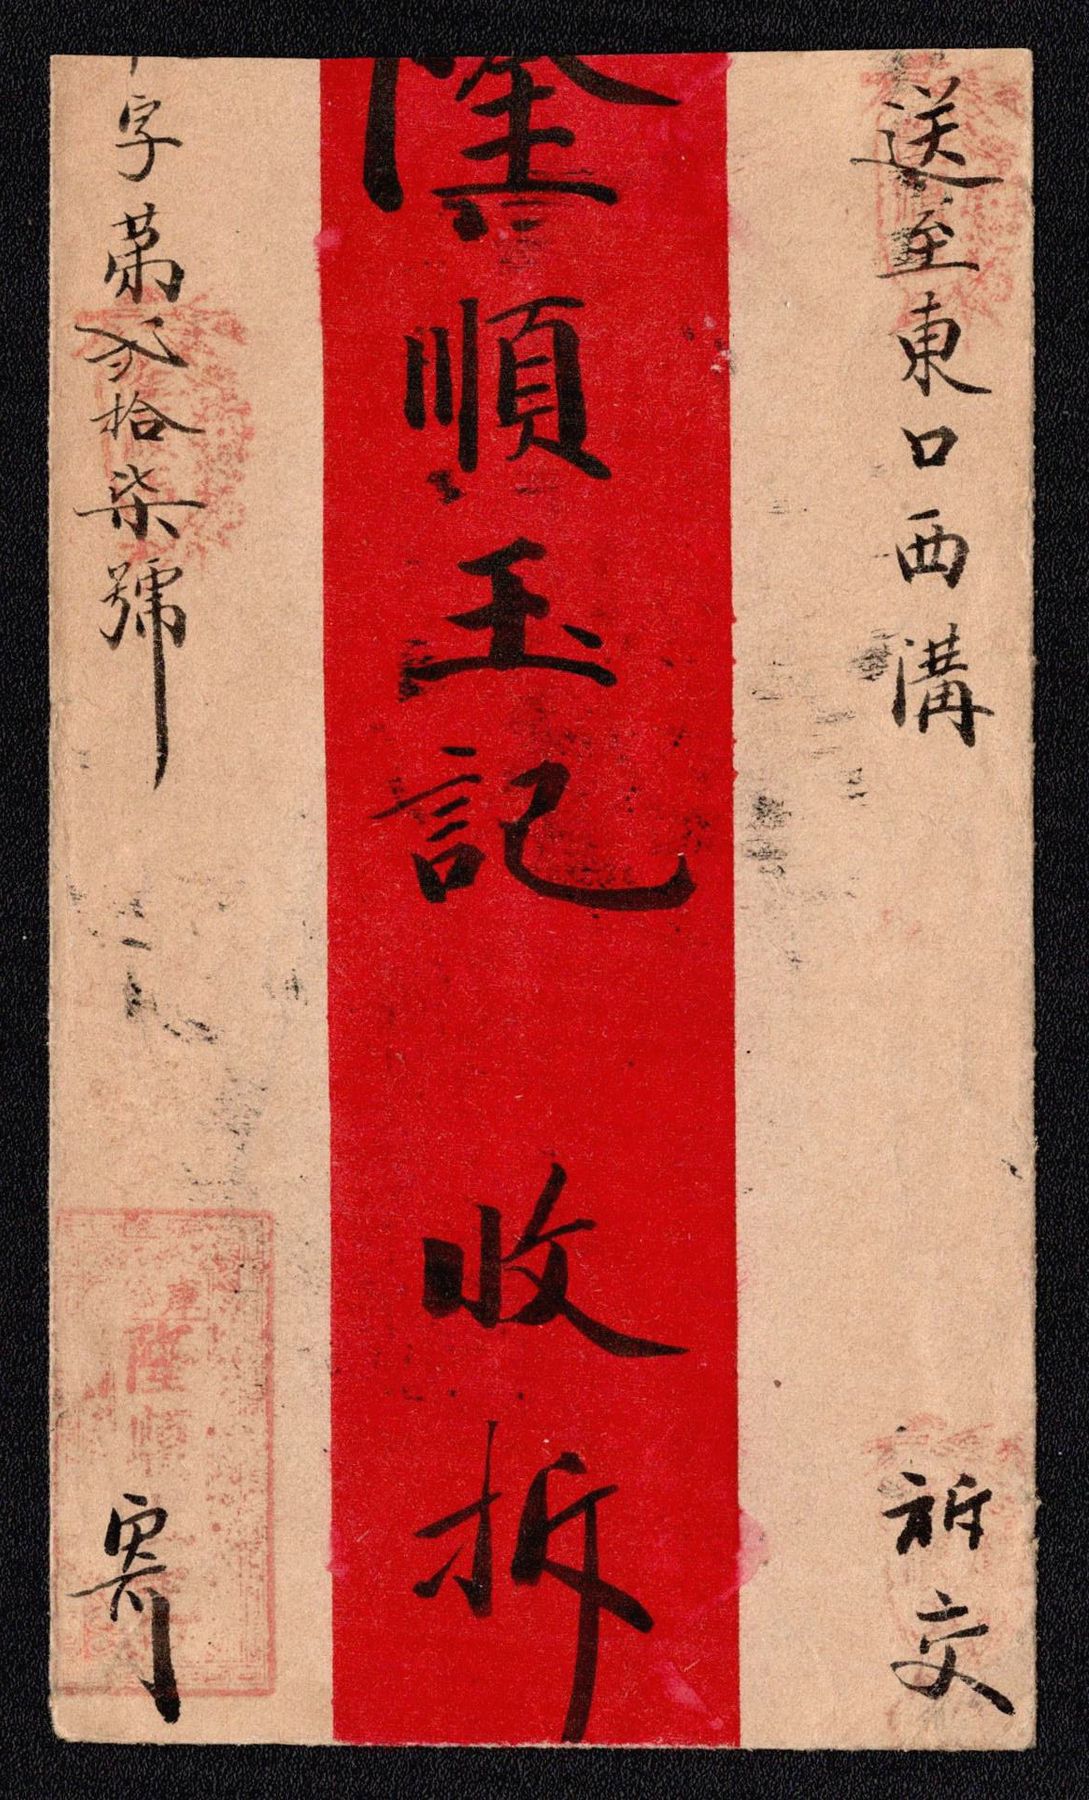 送至東口西溝
祈交
隆順玉記 收拆
字第弍拾柒號
隆順